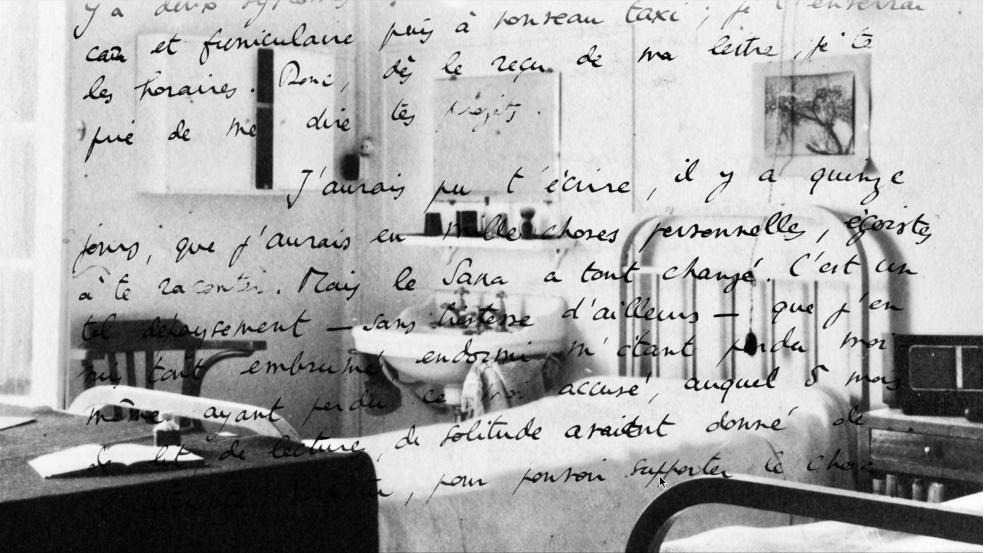 y a deux systèmes
car et funiculaire puis à nouveau taxi ; je t'enverrai
les horaires. Donc, dès le reçu de ma lettre, je te
prie de me dire tes projets.
J'aurais pu t'écrire, il y a quinze
jours, que j'aurais eu mille choses personnelles, égoïstes
à te raconter. Mais le Sana a tout changé. C'est un
tel dépaysement — sans tristesse d'ailleurs — que j'en
suis tout embrumé, endormi m'étant perdu moi-
même ayant perdu ce moi accusé, auquel 5 mois
de lit de lecture, de solitude avaient donné de
, pour pouvoir supporter le choc